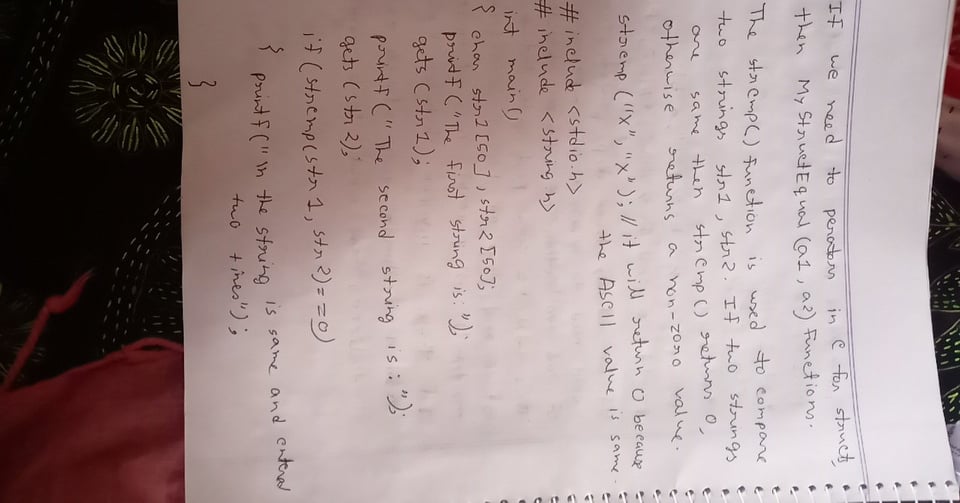 If we need to peratoss in C for structs,
then MyStructEqual (a1, a2) functions.
The strcmp() function is used to compare
two strings str1, str2. If two strings
are same then strcmp() returns 0,
otherwise returns a non-zero value.
strcmp ("x", "x"); // it will return 0 because
the ASCII value is same.
# include <stdio.h>
# include <string.h>
int main()
{ char str1[50], str2[50];
printf ("The first string is:");
gets (str1);
printf ("The second string is:");
gets (str2);
if (strcmp(str1, str2)==0)
{ printf ("\n the string is same and entered
two times");
}